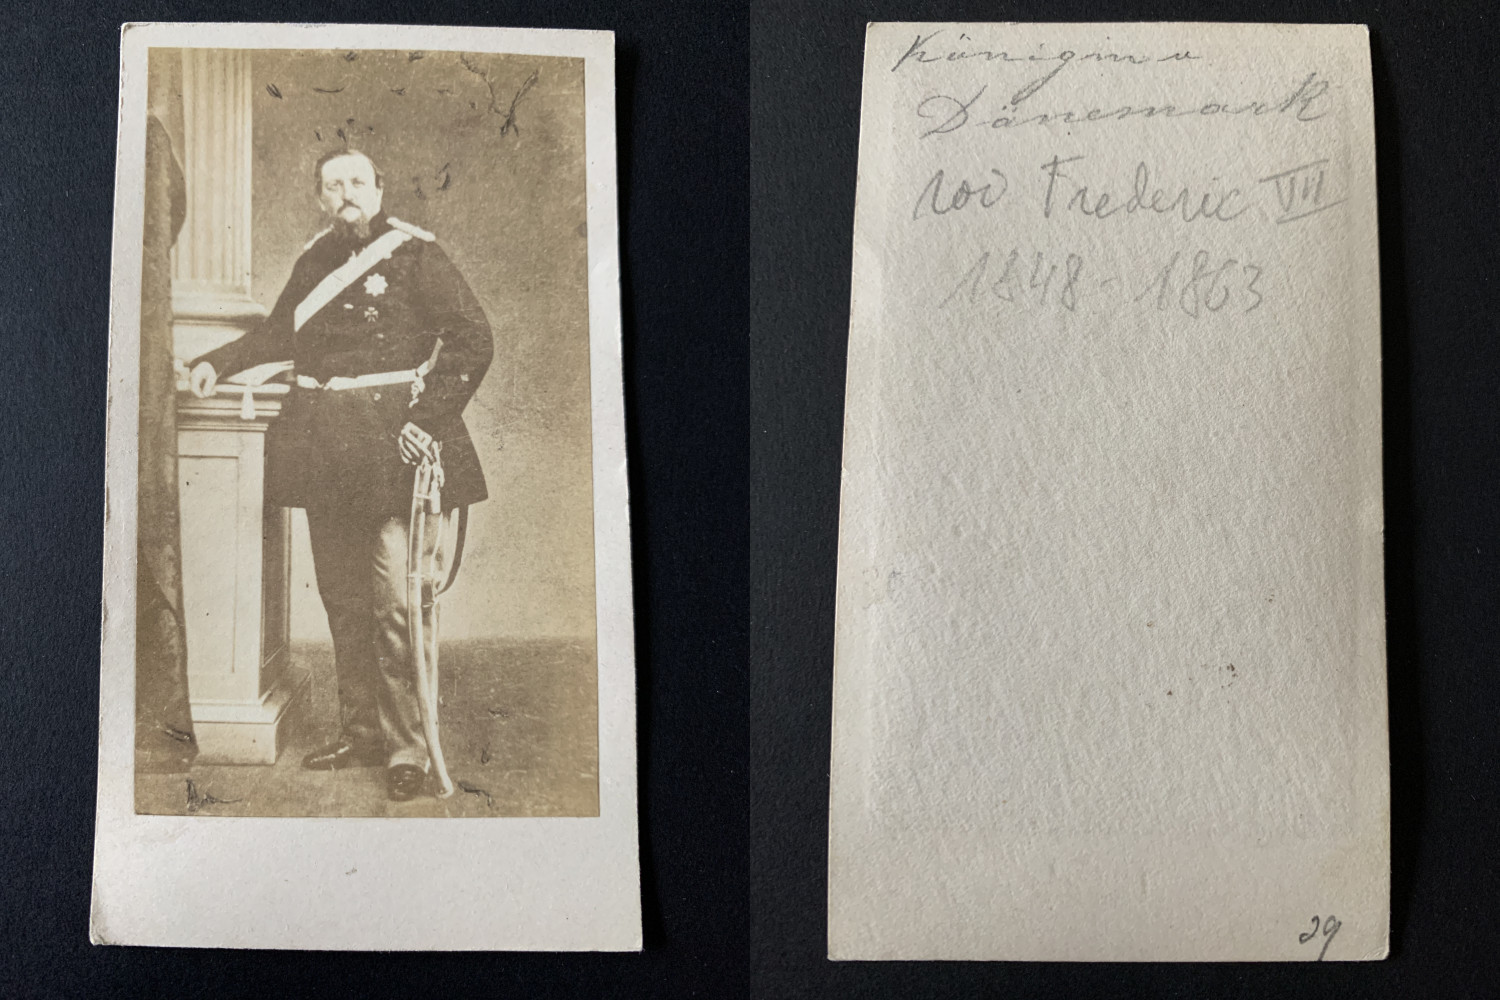 Königin v
Dänemark
roi Frederic VII
1848-1863
29